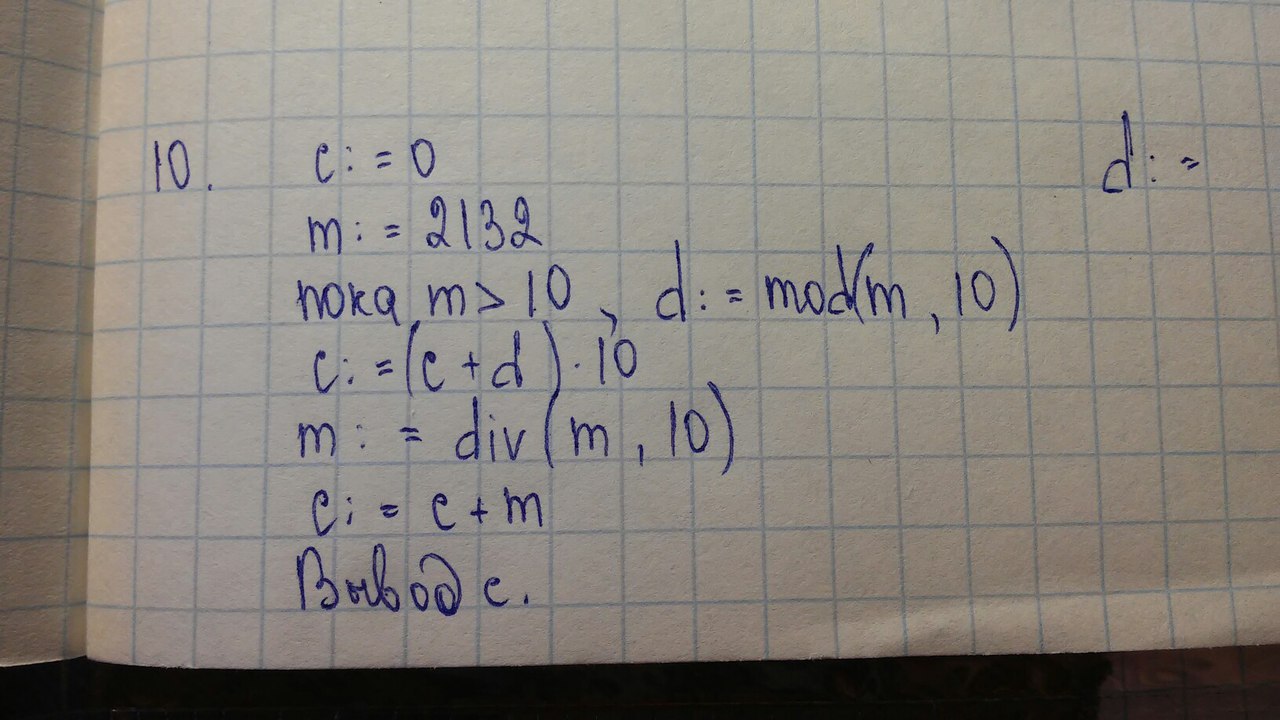 10. c:=0
d:=
m:=2132
пока m>10, d:=mod(m, 10)
c:=(c+d)·10
m:=div(m, 10)
c:=c+m
Вывод c.